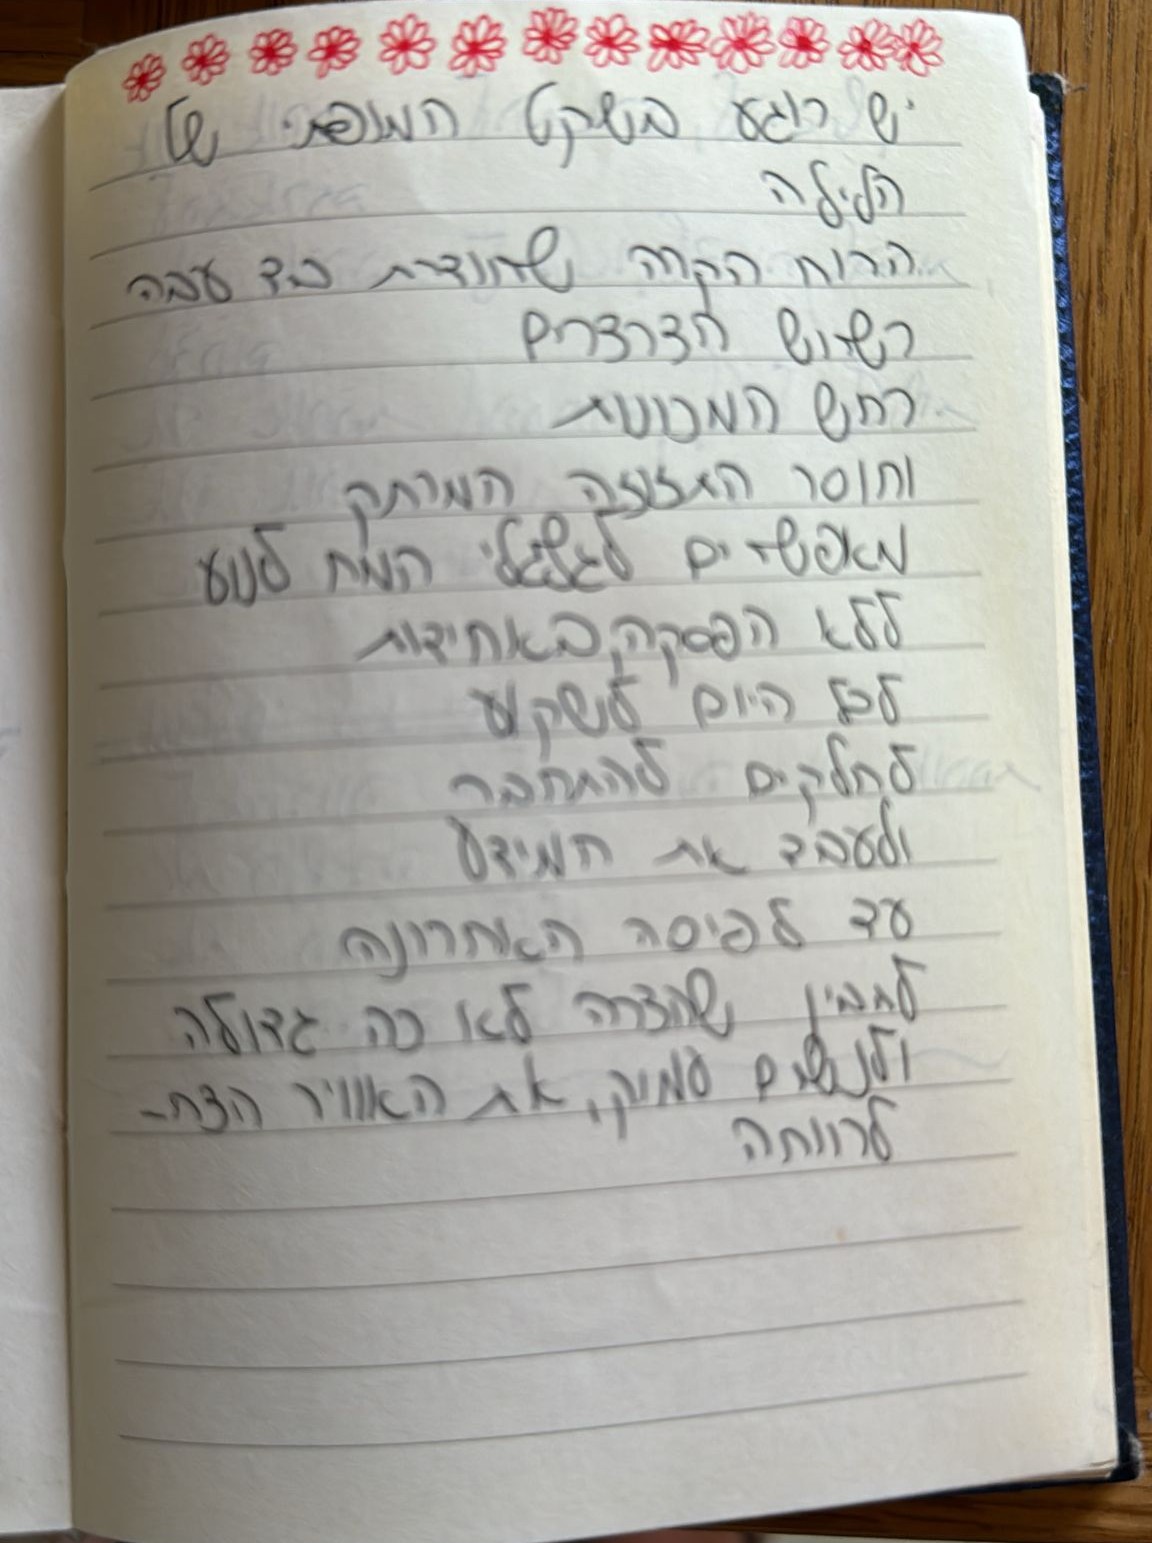 יש רוגע בשקט המופתי של
הלילה
הרוח הקרה שחודרת בד עבה
רשרוש הדרדרים
רחש המכונות
וחוסר התזוזה המרתק
מאפשרים לגלגלי המח לנוע
ללא הפסקה, באחידות
לכל היום לשקוע
לחלקים להתחבר
ולעבד את המידע
עד לפיסה האחרונה
להבין שהצרה לא כה גדולה
ולנשום עמוק, את האוויר הצח-
לרווחה